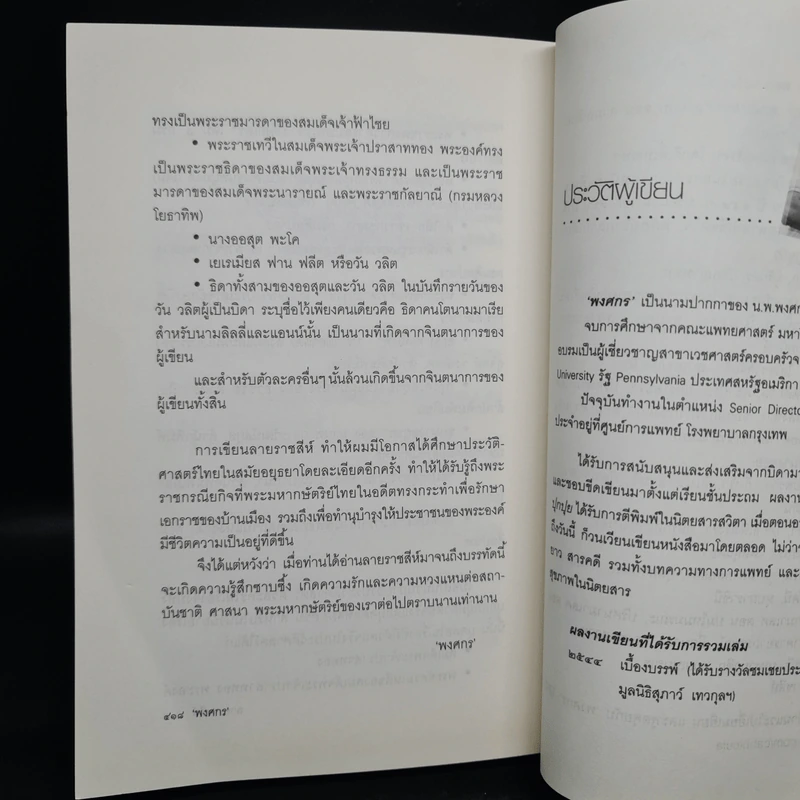 ทรงเป็นพระราชมารดาของสมเด็จเจ้าฟ้าไชย
• พระราชเทวีในสมเด็จพระเจ้าปราสาททอง พระองค์ทรง
เป็นพระราชธิดาของสมเด็จพระเจ้าทรงธรรม และเป็นพระราช
มารดาของสมเด็จพระนารายณ์ และพระราชกัลยาณี (กรมหลวง
โยธาทิพ)
• นางออสุต พะโค
• เยเรเมียส ฟาน ฟลีต หรือวัน วลิต
• ธิดาทั้งสามของออสุตและวัน วลิต ในบันทึกรายวันของ
วัน วลิตผู้เป็นบิดา ระบุชื่อไว้เพียงคนเดียวคือ ธิดาคนโตนามมาเรีย
สำหรับนามลิลลี่และแอนน์นั้น เป็นนามที่เกิดจากจินตนาการของ
ผู้เขียน
และสำหรับตัวละครอื่นๆ นั้นล้วนเกิดขึ้นจากจินตนาการของ
ผู้เขียนทั้งสิ้น
การเขียนลายราชสีห์ ทำให้ผมมีโอกาสได้ศึกษาประวัติ-
ศาสตร์ไทยในสมัยอยุธยาโดยละเอียดอีกครั้ง ทำให้ได้รับรู้ถึงพระ
ราชกรณียกิจที่พระมหากษัตริย์ไทยในอดีตทรงกระทำเพื่อรักษา
เอกราชของบ้านเมือง รวมถึงเพื่อทำนุบำรุงให้ประชาชนของพระองค์
มีชีวิตความเป็นอยู่ที่ดีขึ้น
จึงได้แต่หวังว่า เมื่อท่านได้อ่านลายราชสีห์มาจนถึงบรรทัดนี้
จะเกิดความรู้สึกซาบซึ้ง เกิดความรักและความหวงแหนต่อสถา-
บันชาติ ศาสนา พระมหากษัตริย์ของเราต่อไปตราบนานเท่านาน
'พงศกร'
๔๑๘ 'พงศกร'
ประวัติผู้เขียน
'พงศกร' เป็นนามปากกาของ น.พ.พงศก
จบการศึกษาจากคณะแพทยศาสตร์ มหา
อบรมเป็นผู้เชี่ยวชาญสาขาเวชศาสตร์ครอบครัวจ
University รัฐ Pennsylvania ประเทศสหรัฐอเมริกา
ปัจจุบันทำงานในตำแหน่ง Senior Directo
ประจำอยู่ที่ศูนย์การแพทย์ โรงพยาบาลกรุงเทพ
ได้รับการสนับสนุนและส่งเสริมจากบิดามา
และชอบขีดเขียนมาตั้งแต่เรียนชั้นประถม ผลงาน
ปุกปุย ได้รับการตีพิมพ์ในนิตยสารสวิตา เมื่อตอนอ
ถึงวันนี้ ก็วนเวียนเขียนหนังสือมาโดยตลอด ไม่ว่าจ
ยาว สารคดี รวมทั้งบทความทางการแพทย์ และ
สุขภาพในนิตยสาร
ผลงานเขียนที่ได้รับการรวมเล่ม
๒๕๔๔ เบื้องบรรพ์ (ได้รับรางวัลชมเชยประ
มูลนิธิสุภาว์ เทวกุลฯ)